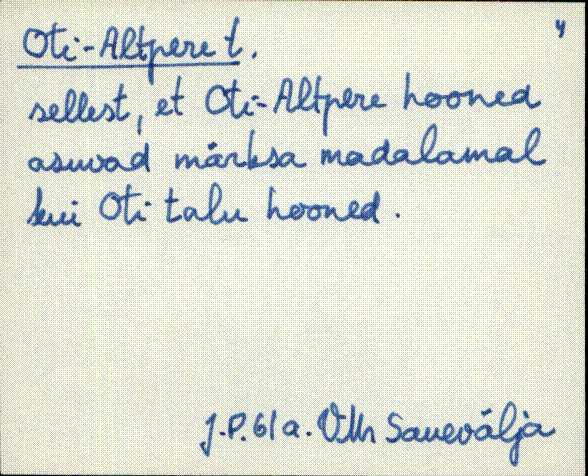 4
Oti-Altpere t.
sellest, et Oti-Altpere hooned
asuvad märksa madalamal
kui Oti talu hooned.
J.P. 61 a. VMr Sauevälja